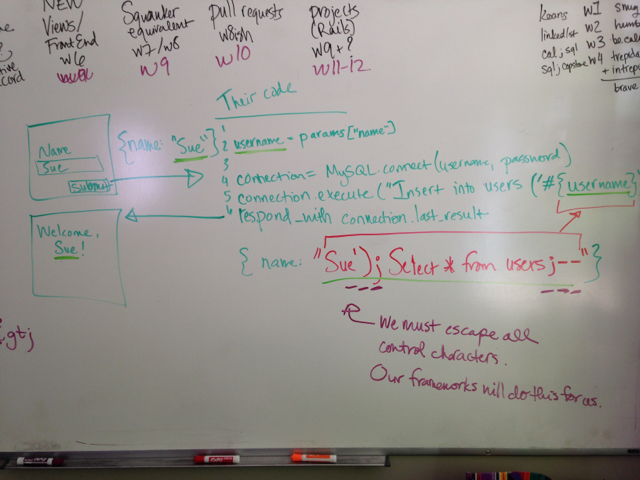 NEW
Views/
FrontEnd
W6
Squanker
equivalent
w7/w8
W9
pull requests
w8ish
W10
projects
(Rails)
w9+?
W11-12
Koans W1
linkedlist W2
cal, sql W3
sql; capstone W4
smug
humb
be.calm
trepida
+ intrepi
brave
Their code
Name
Sue
Submit
{name: "Sue"}
1
2 username = params["name"]
3
4 connection = MySQL.connect(username, password)
5 connection execute ("Insert into users ('#{username}'
6 respond_with connection.last_result
Welcome,
Sue!
{ name: "Sue'); Select * from users;--" }
We must escape all
control characters.
Our frameworks will do this for us.
.gtj